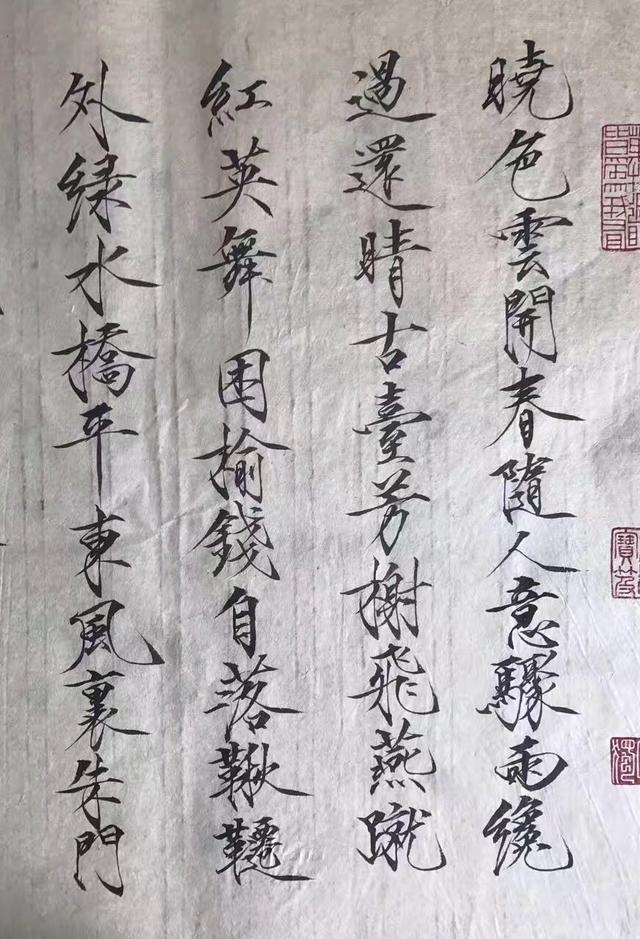 曉色雲開春隨人意驟雨纔
過還晴古臺芳榭飛燕蹴
紅英舞困榆錢自落鞦韆
外緑水橋平東風裏朱門